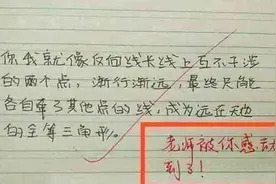 你我就像反向线长线上互不干涉
的两个点，渐行渐远，最终只能
各自牵了其他点的线，成为远在天边
的全等三角形。
老师被你感动
到了！